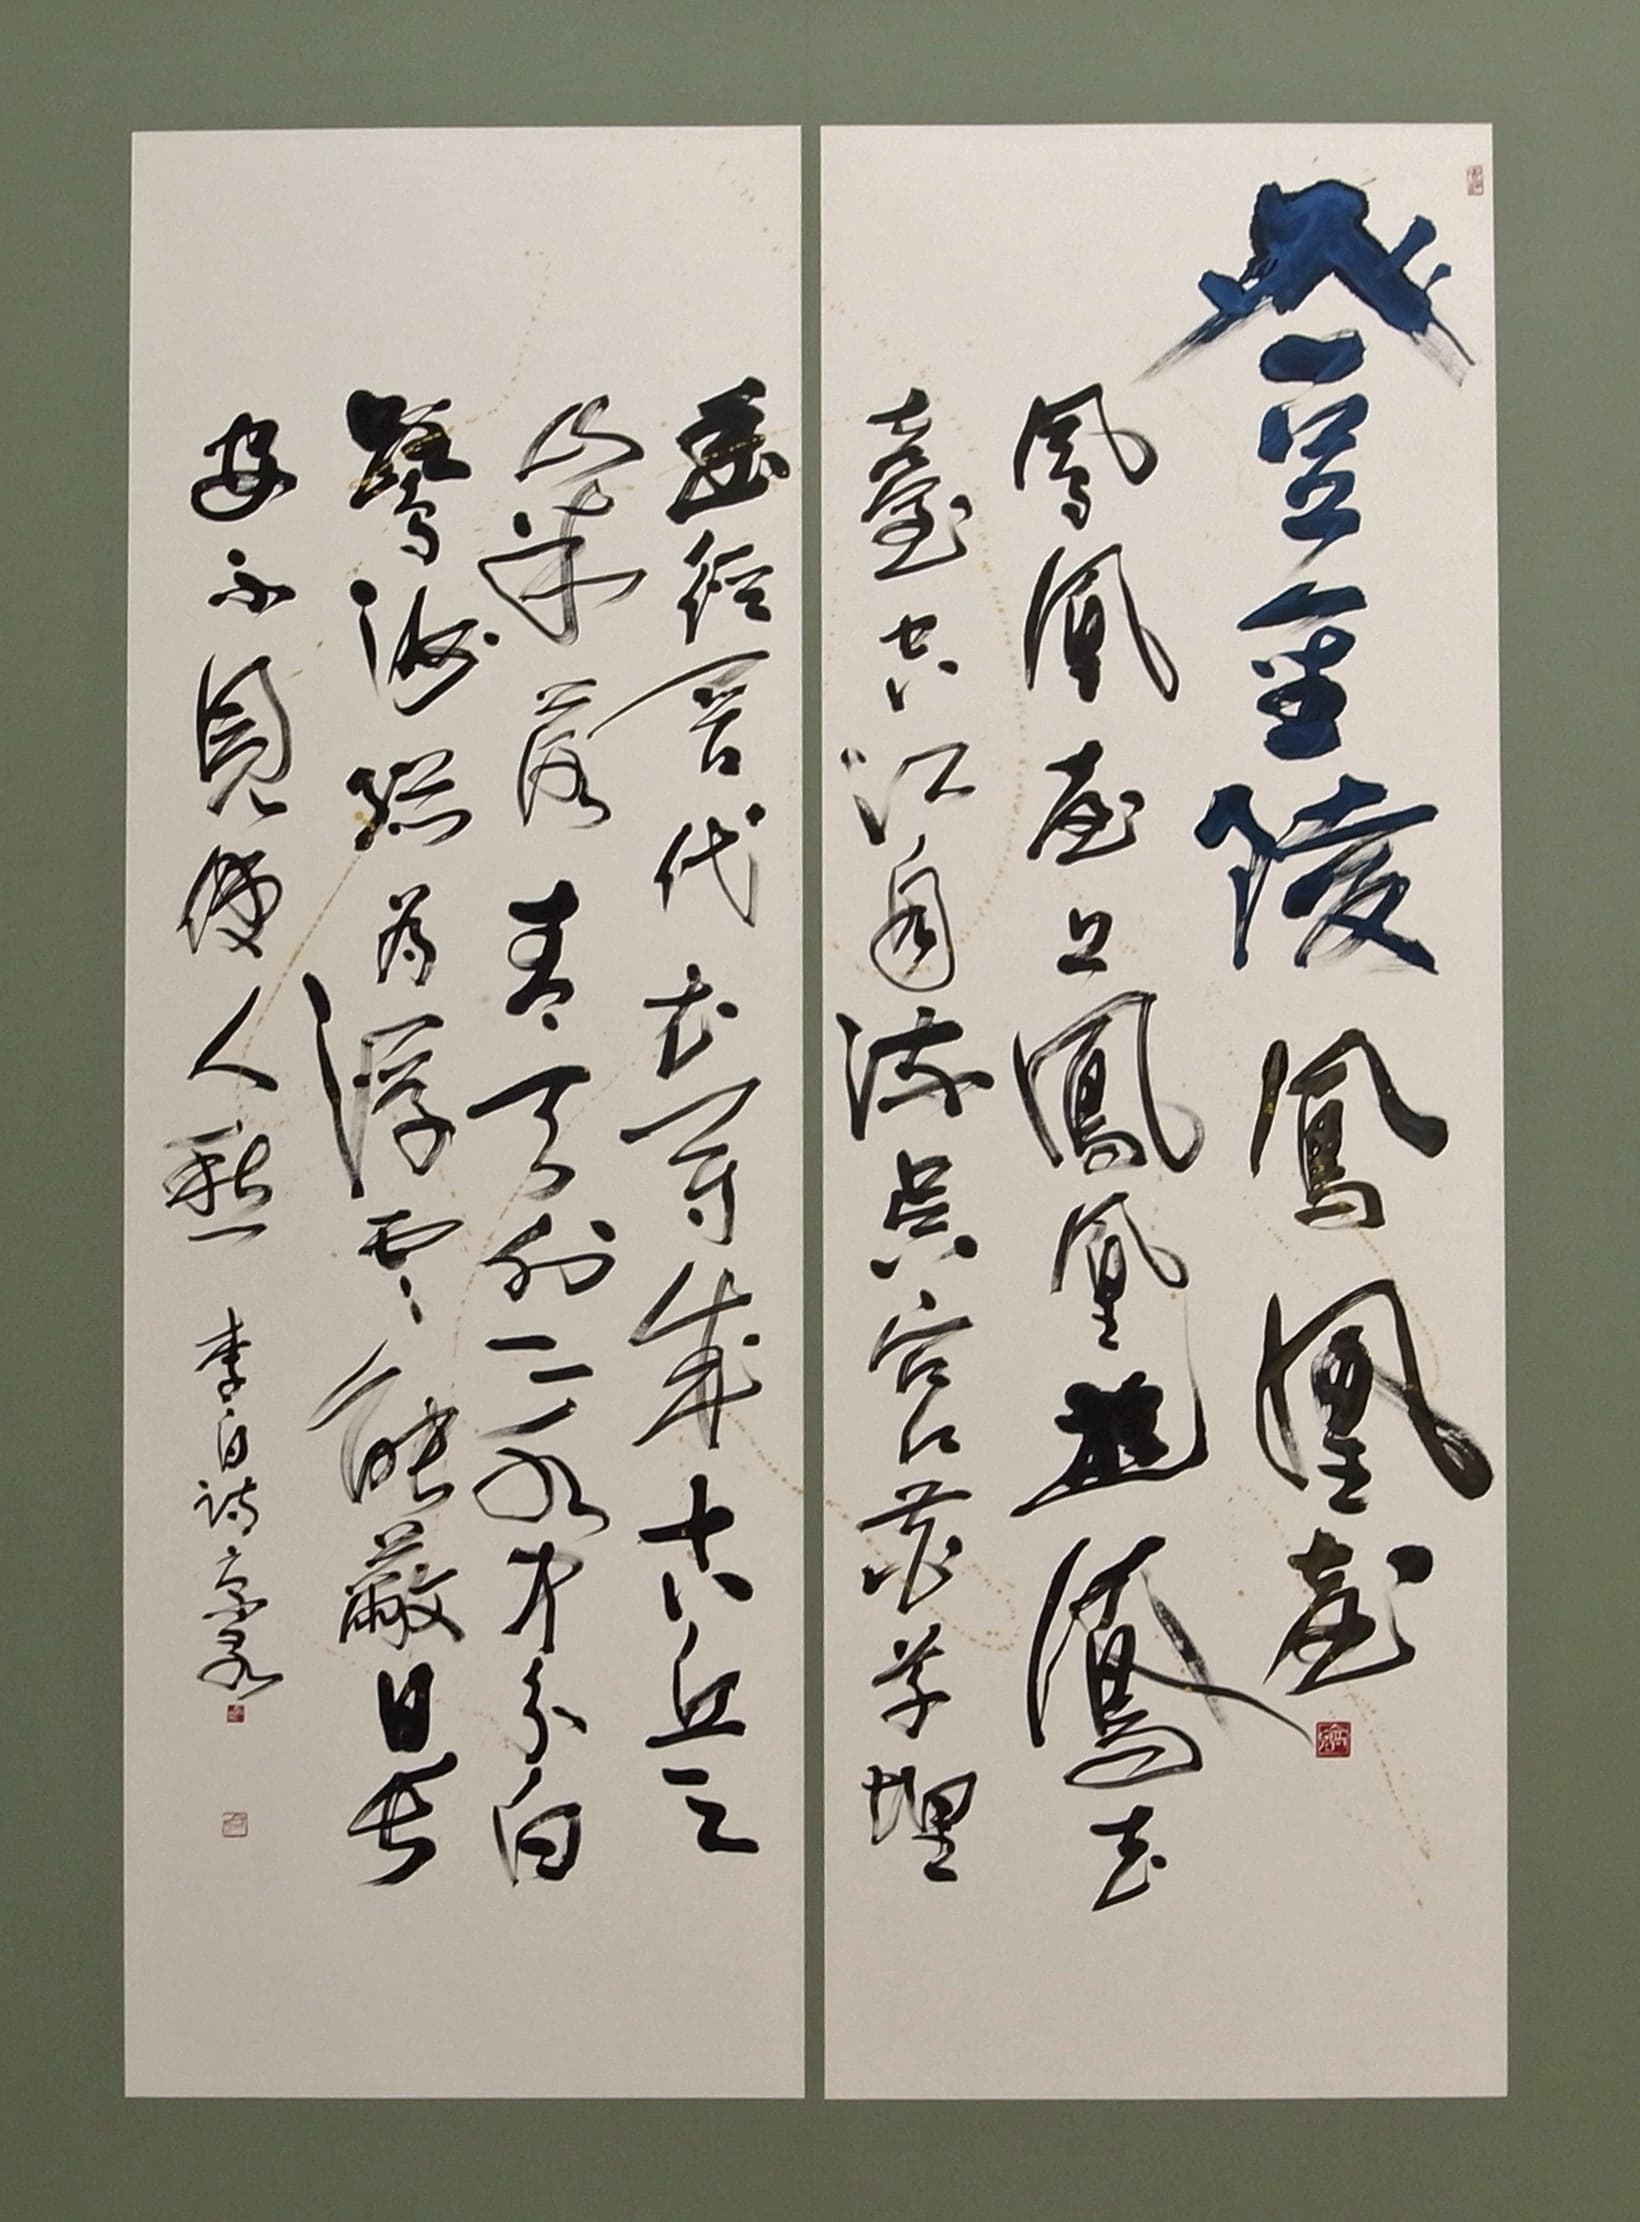 登金陵鳳凰臺
鳳凰臺上鳳凰遊鳳去
臺空江自流吳宮花草埋
幽徑晉代衣冠成古丘三
山半落青天外二水中分白
鷺洲總為浮雲能蔽日長
安不見使人愁 李白詩